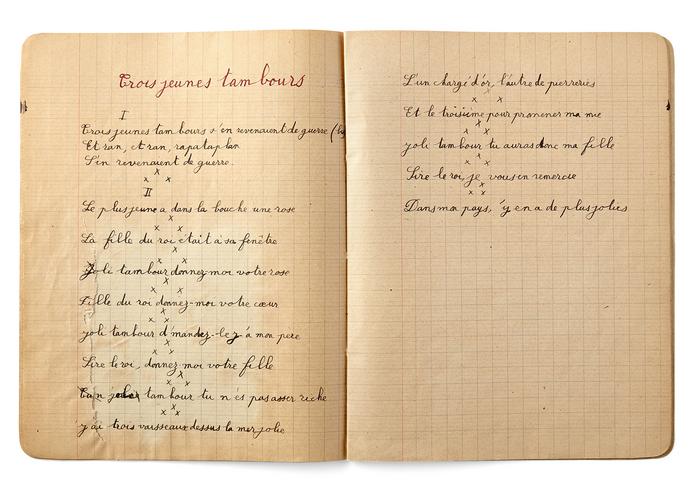 Trois jeunes tambours
I
Trois jeunes tambours s'en revenaient de guerre (bis
Et ran, et ran, rapataplan
S'en revenaient de guerre.
x x x
II
Le plus jeune a dans la bouche une rose
x x x
La fille du roi était à sa fenêtre
x x x
Joli tambour donnez-moi votre rose
x x x
Fille du roi donnez-moi votre cœur
x x x
Joli tambour d'mandez-le-z-à mon père
x x x
Sire le roi, donnez-moi votre fille
x x x
tambour tu n'es pas assez riche
x x x
J'ai trois vaisseaux dessus la mer jolie
L'un chargé d'or, l'autre de pierreries
x x x
Et le troisième pour promener ma mie
x x x
Joli tambour tu auras donc ma fille
x x x
Sire le roi, je vous en remercie
x x x
Dans mon pays, y en a de plus jolies